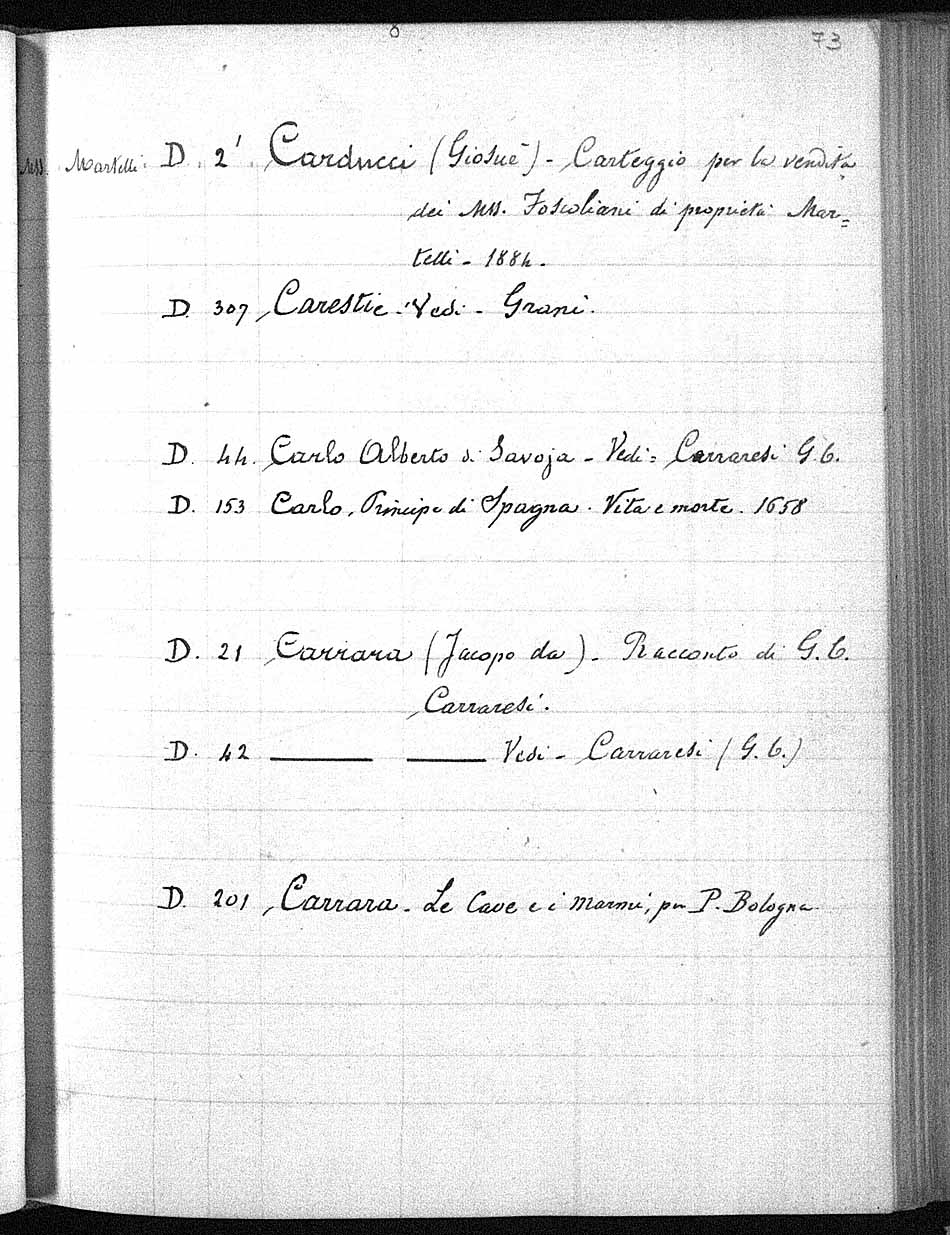 73
MSS. Martelli D. 2' Carducci (Giosuè) - Carteggio per la vendita
dei MSS. Foscoliani di proprietà Mar=
telli - 1884.
D. 307 Carestie - Vedi - Grani.
D. 44. Carlo Alberto di Savoja - Vedi = Carraresi G. C.
D. 153 Carlo, Principe di Spagna. Vita e morte. 1658
D. 21 Carrara (Jacopo da) - Racconto di G. C.
Carraresi.
D. 42 —— —— Vedi - Carraresi (G. C.)
D. 201 Carrara - Le Cave e i marmi, per P. Bologna